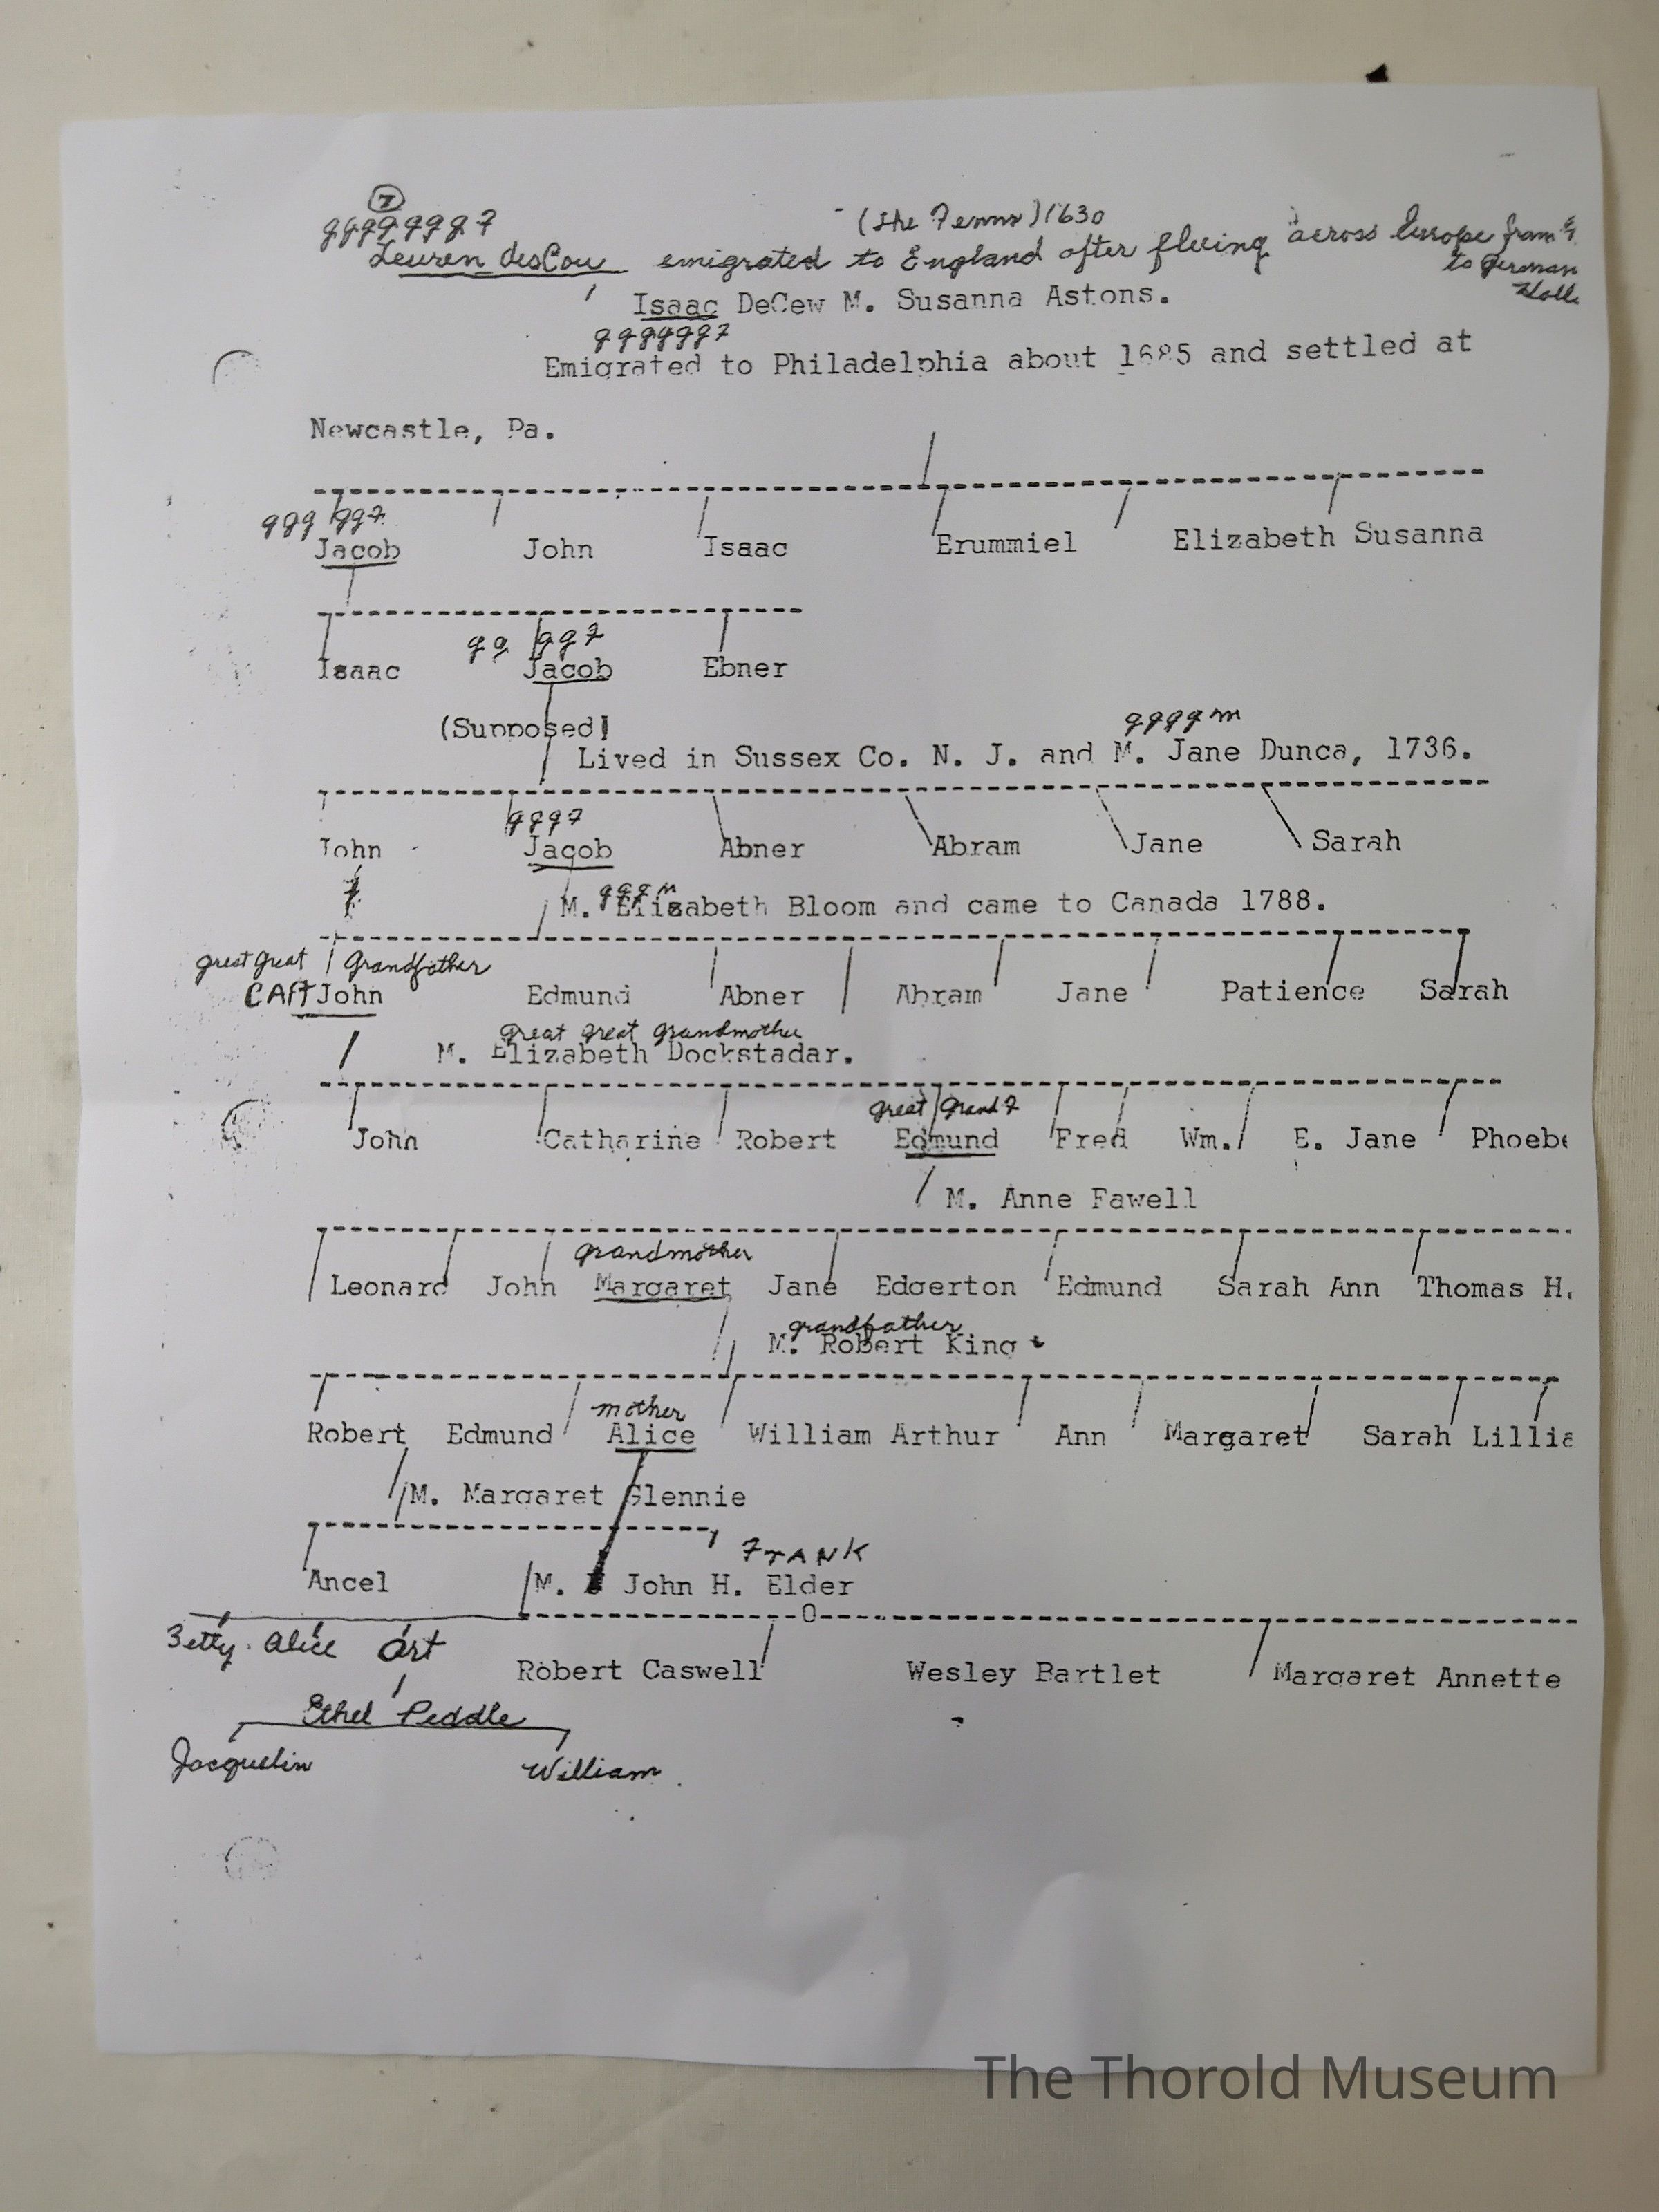 7
ggggggg7
(the Fenns) 1630
Leuren desCou emigrated to England after fleeing across Europe from
to German
Isaac DeCew M. Susanna Astons.
gggggg7
Emigrated to Philadelphia about 1685 and settled at
Newcastle, Pa.
ggg gg7
Jacob John Isaac Erummiel Elizabeth Susanna
gg gg7
Isaac Jacob Ebner
(Supposed)
ggggm
Lived in Sussex Co. N. J. and M. Jane Dunca, 1736.
ggg7
John Jacob Abner Abram Jane Sarah
gggm
M. Elizabeth Bloom and came to Canada 1788.
great great grandfather
CAPT John Edmund Abner Abram Jane Patience Sarah
great great grandmother
M. Elizabeth Dockstadar.
great grand 7
John Catharine Robert Edmund Fred Wm. E. Jane Phoebe
M. Anne Fawell
grandmother
Leonard John Margaret Jane Edgerton Edmund Sarah Ann Thomas H.
grandfather
M. Robert King
mother
Robert Edmund Alice William Arthur Ann Margaret Sarah Lillia
M. Margaret Glennie
FrANK
Ancel M. John H. Elder
O
Betty. Alice Art
Robert Caswell Wesley Bartlet Margaret Annette
Ethel Peddle
Jacquelin William
The Thorold Museum